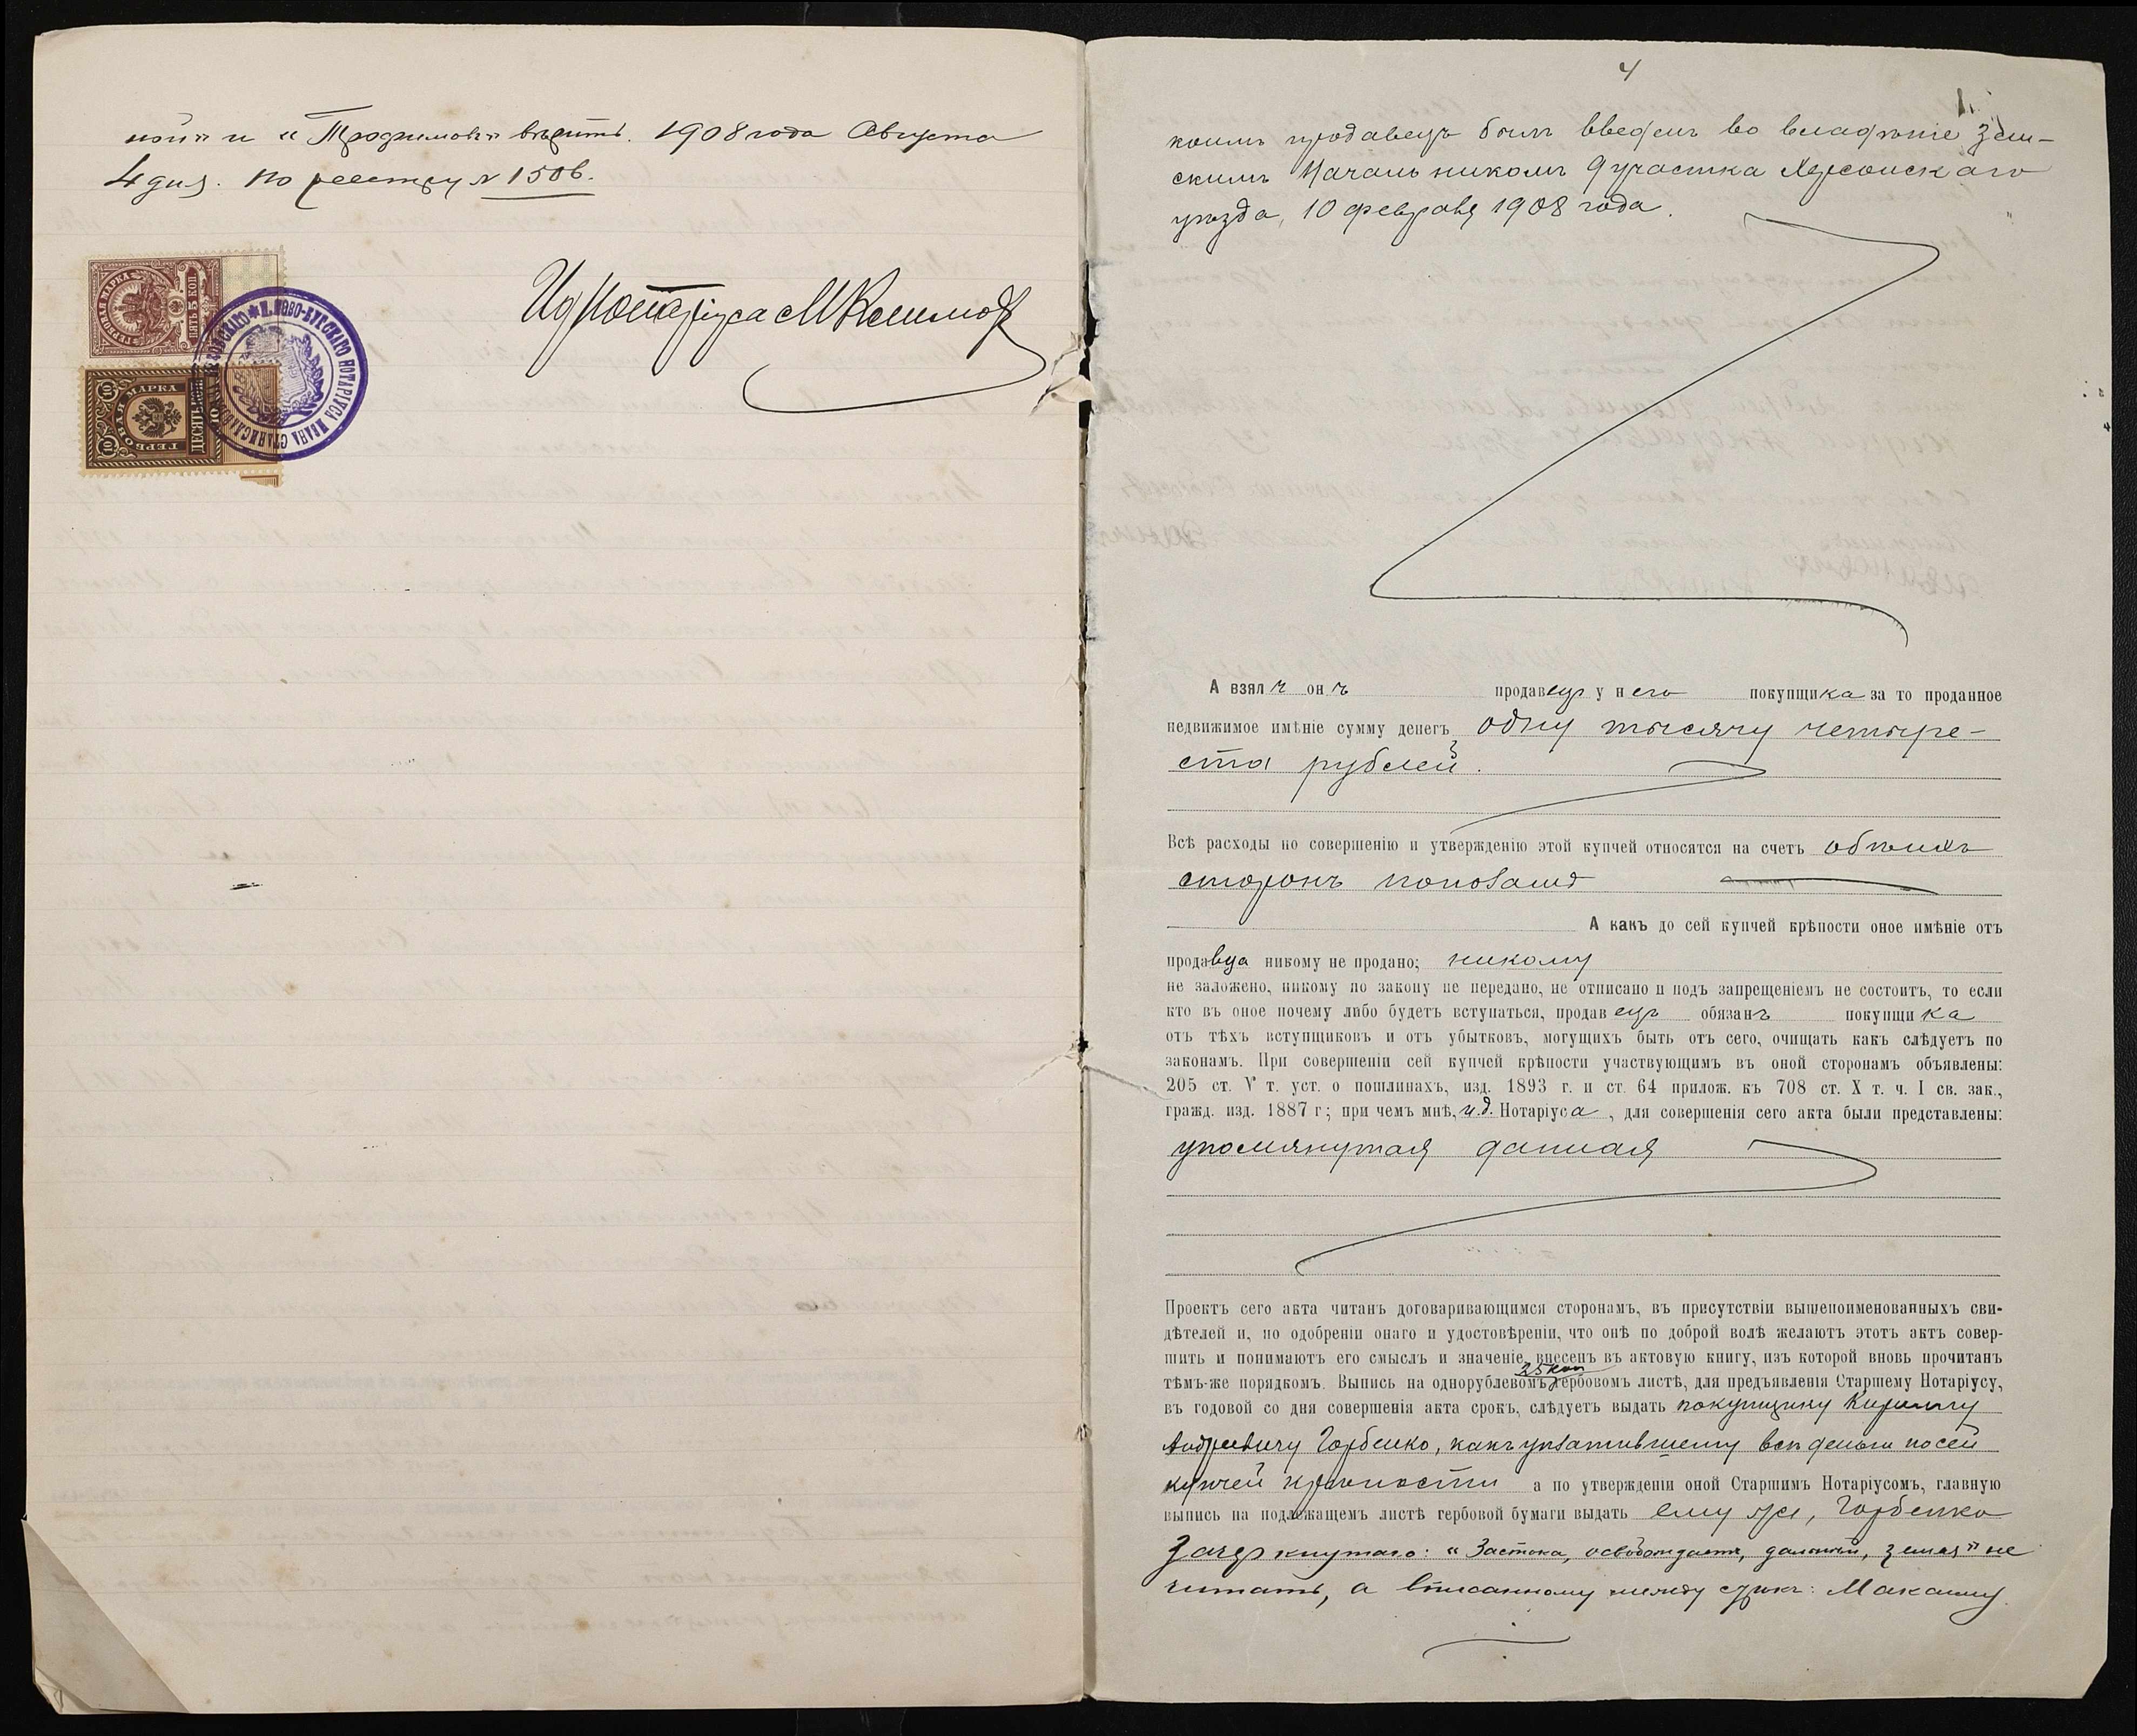 ной" и „Трофимовъ" вѣрить. 1908 года Августа
4 дня. По реестру № 1506.
ГЕРБОВАЯ МАРКА
ПЯТЬ 5 КОП
ГЕРБОВАЯ МАРКА
ДЕСЯТЬ КОП
10
НОВО-БУГСКАГО НОТАРІУСА ИВАНА СТАНИСЛАВОВИЧА
Ид Нотаріуса М Климов
4
коимъ продавецъ былъ введенъ во владѣніе Зем-
скимъ Начальникомъ 9 участка Херсонскаго
уѣзда, 10 февраля 1908 года.
А взялъ онъ продавецъ у него покупщика за то проданное
недвижимое имѣніе сумму денегъ одну тысячу четыре-
ста рублей.
Всѣ расходы по совершенію и утвержденію этой купчей относятся на счетъ обѣихъ
сторонъ пополамъ
А какъ до сей купчей крѣпости оное имѣніе отъ
продавца никому не продано; никому
не заложено, никому по закону не передано, не отписано и подъ запрещеніемъ не состоитъ, то если
кто въ оное почему либо будетъ вступаться, продавецъ обязанъ покупщика
отъ тѣхъ вступщиковъ и отъ убытковъ, могущихъ быть отъ сего, очищать какъ слѣдуетъ по
законамъ. При совершеніи сей купчей крѣпости участвующимъ въ оной сторонамъ объявлены:
205 ст. V т. уст. о пошлинахъ, изд. 1893 г. и ст. 64 прилож. къ 708 ст. X т. ч. I св. зак.,
гражд. изд. 1887 г; при чемъ мнѣ, и.д. Нотаріуса, для совершенія сего акта были представлены:
упомянутая данная
Проектъ сего акта читанъ договаривающимся сторонамъ, въ присутствіи вышепоименованныхъ сви-
дѣтелей и, по одобреніи онаго и удостовѣреніи, что онѣ по доброй волѣ желаютъ этотъ актъ совер-
шить и понимаютъ его смыслъ и значеніе, внесенъ въ актовую книгу, изъ которой вновь прочитанъ
25 коп
тѣмъ-же порядкомъ. Выпись на однорублевомъ гербовомъ листѣ, для предъявленія Старшему Нотаріусу,
въ годовой со дня совершенія акта срокъ, слѣдуетъ выдать покупщику Кириллу
Андреевичу Горбенко, какъ уплатившему всѣ деньги по сей
купчей крѣпости а по утвержденіи оной Старшимъ Нотаріусомъ, главную
выпись на подлежащемъ листѣ гербовой бумаги выдать ему же, Горбенко
Зачеркнутаго: „Застока, освобождаетъ, дальній, земля" не
читать, а вписанному между строкъ: